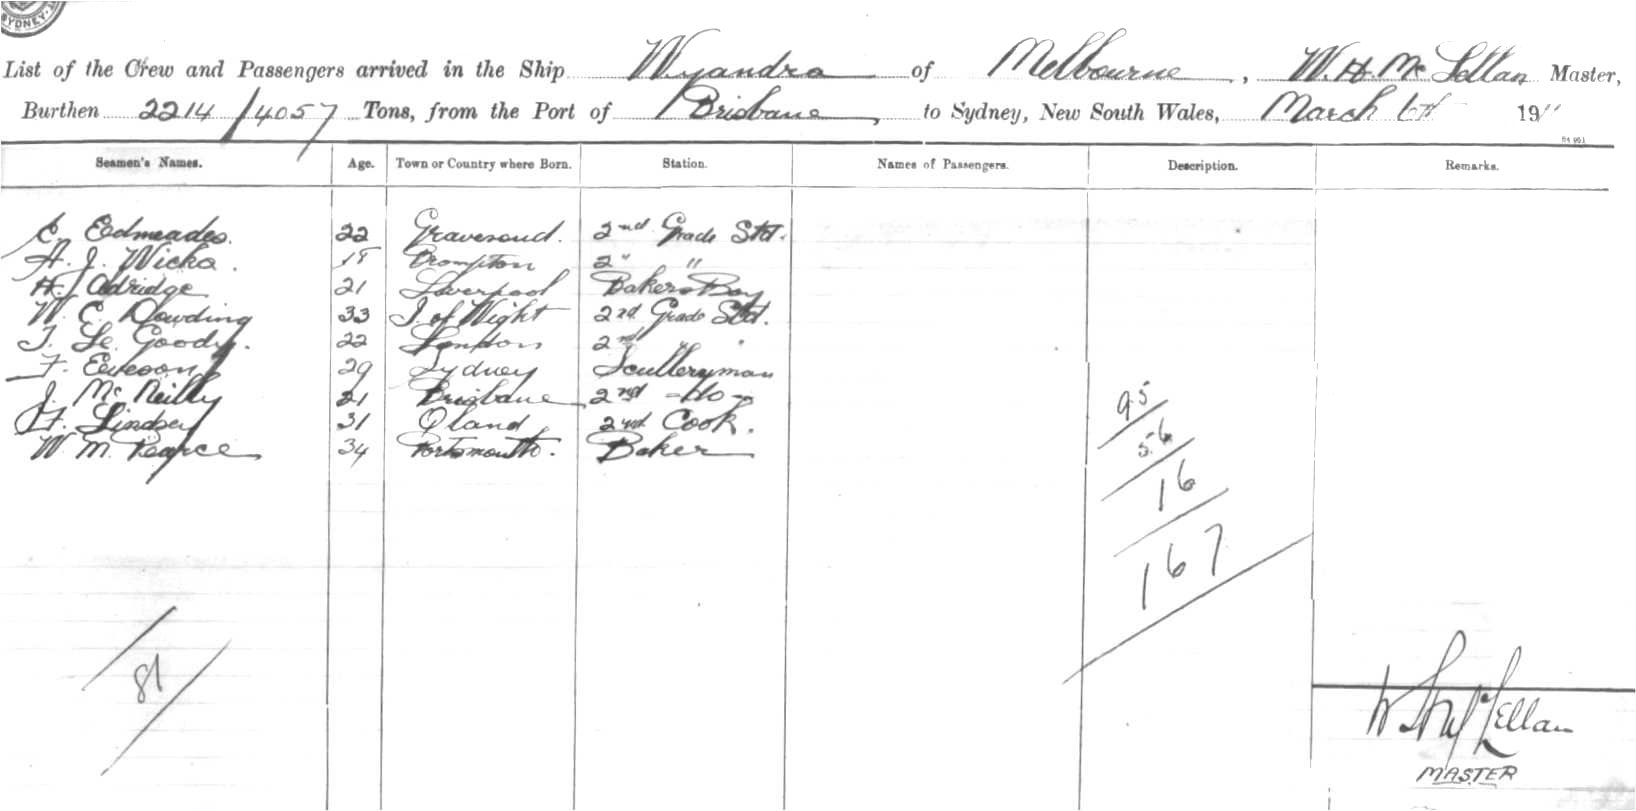 SYDNEY
List of the Crew and Passengers arrived in the Ship Wyandra of Melbourne, W. H. Mc Lellan Master,
Burthen 2214/4057 Tons, from the Port of Brisbane, to Sydney, New South Wales, March 6th 1911
Seamen's Names. Age. Town or Country where Born. Station. Names of Passengers. Description. Remarks.
C. Edmeades. 22 Gravesend. 2nd Grade Std.
A. J. Wicks. Brompton 2" "
H. Aldridge 21 Liverpool Bakers Boy
W. C. Dowding 33 I of Wight 2nd Grade Std.
T. Le Goody. 22 London 2nd " "
F. Eveson 29 Sydney Sculleryman
J. Mc Neilly 21 Brisbane 2nd -do-
F. Lindsey 31 Oland 2nd Cook.
W. M. Pearce 34 Portsmouth. Baker
95
56
16
167
81
W H McLellan
MASTER